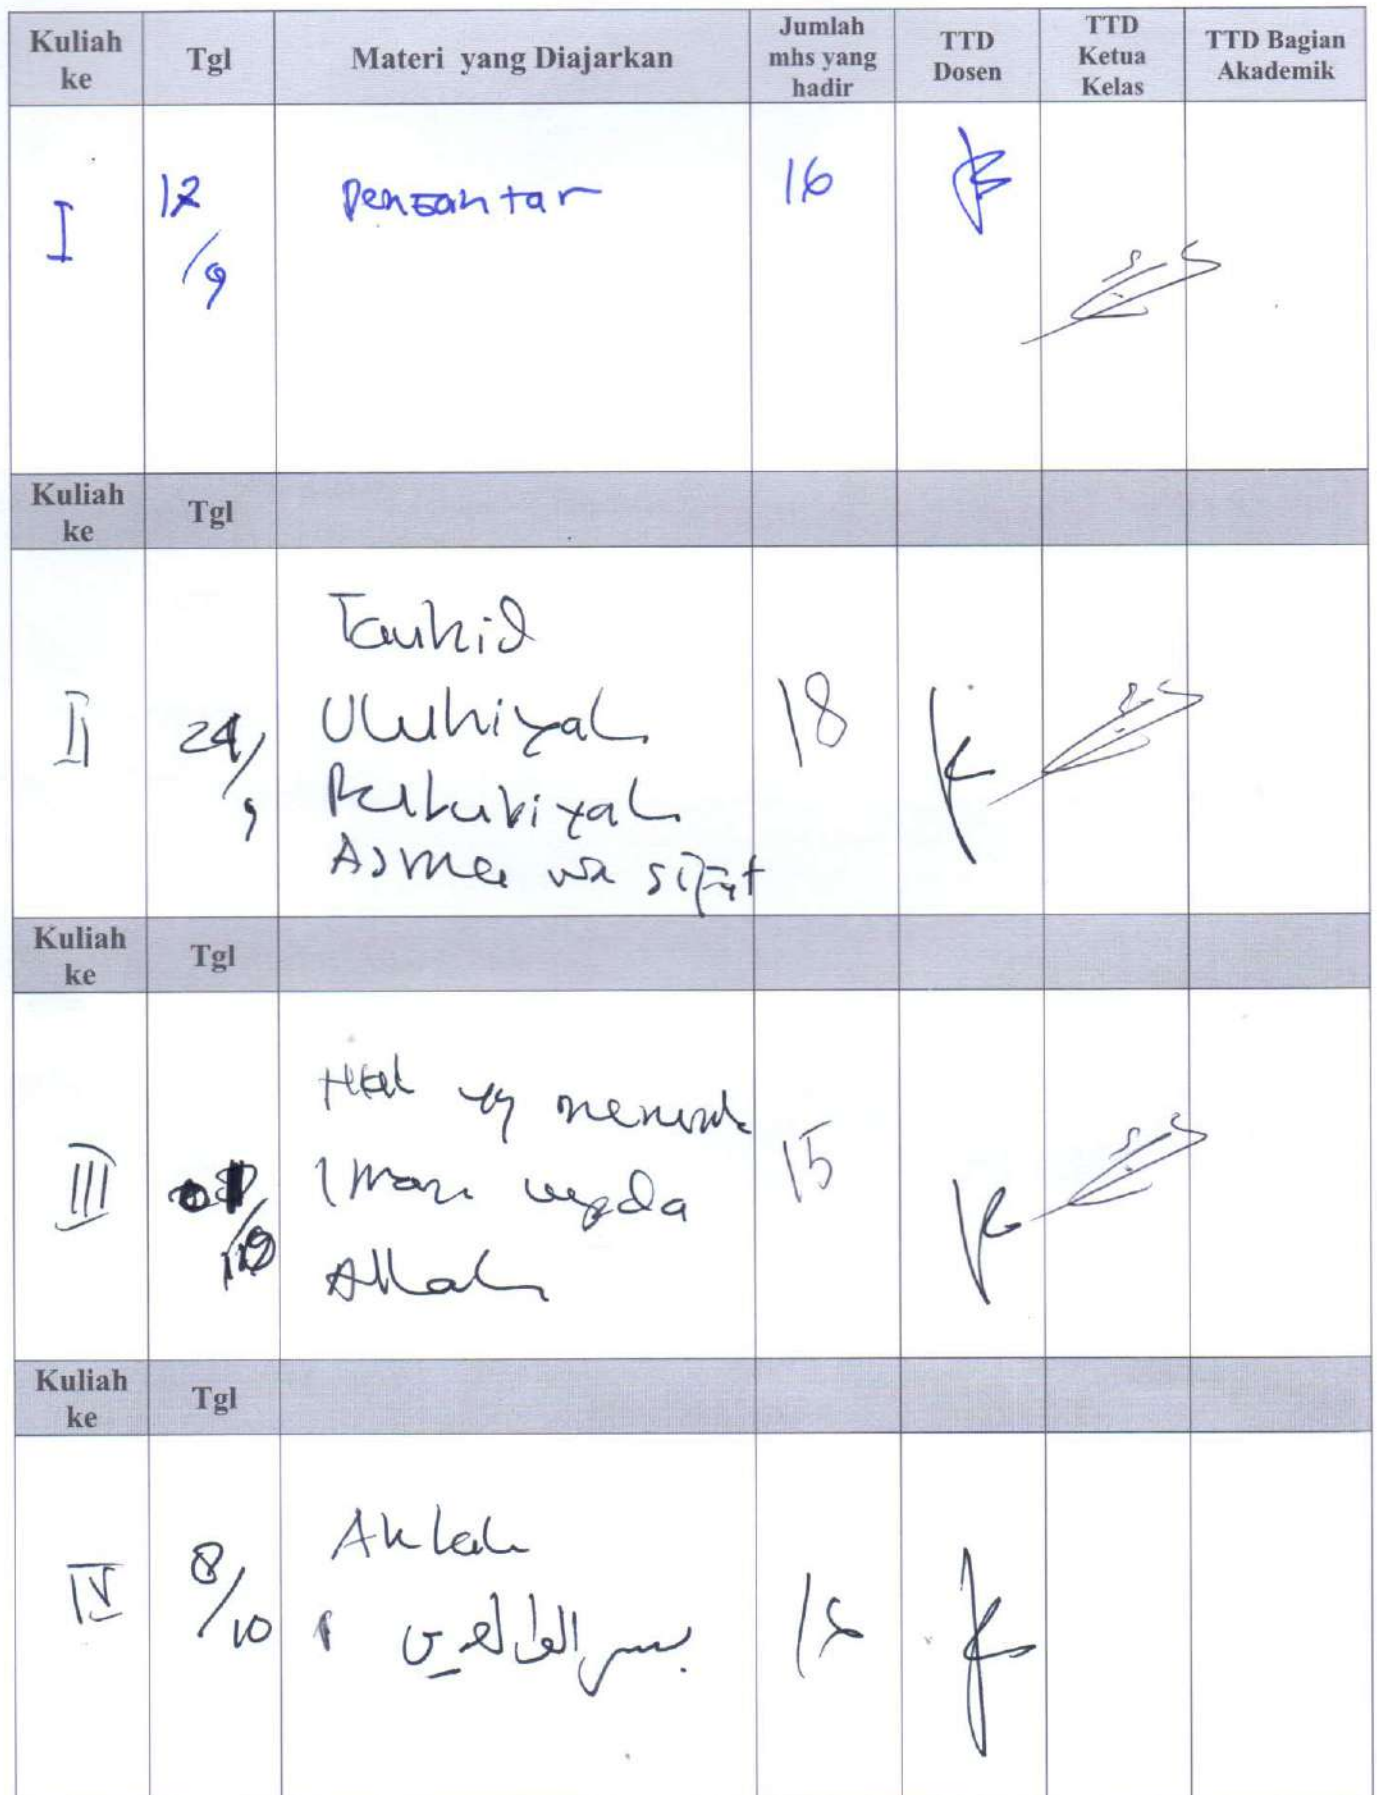 Kuliah ke Tgl Materi yang Diajarkan Jumlah mhs yang hadir TTD Dosen TTD Ketua Kelas TTD Bagian Akademik
I /9 Pengantar 16
Kuliah ke Tgl
II 24/9 Tauhid 18
Uluhiyah
Rububiyah
Asma wa sifat
Kuliah ke Tgl
III Hal yg 15
Iman kepada
Allah
Kuliah ke Tgl
IV 8/10 Akhlak